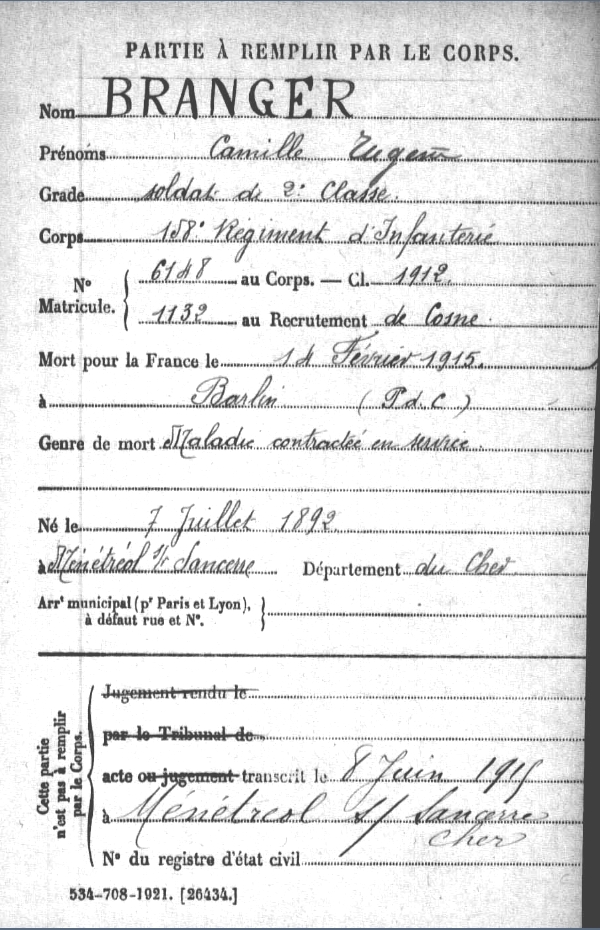 PARTIE À REMPLIR PAR LE CORPS.
Nom BRANGER
Prénoms Camille Eugène
Grade soldat de 2e Classe.
Corps 158e Régiment d'Infanterie
N° Matricule. 6148 au Corps. — Cl. 1912.
1132 au Recrutement de Cosne.
Mort pour la France le 14 Février 1915.
à Barlin (P.d.C)
Genre de mort Maladie contractée en service.
Né le 7 Juillet 1892
à Ménétréol s/r Sancerre Département du Cher.
Arrt municipal (pr Paris et Lyon),
à défaut rue et N°.
Cette partie n'est pas à remplir par le Corps.
Jugement rendu le
par le Tribunal de
acte ou jugement transcrit le 8 Juin 1915
à Ménétreol s/ Sancerre
Cher
N° du registre d'état civil
534-708-1921. [26434.]